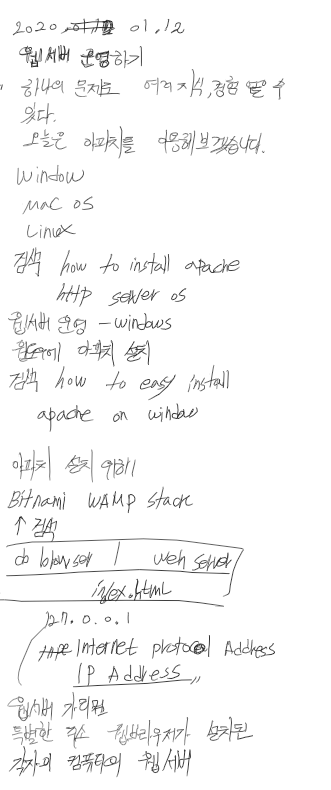 2020 01.12
웹서버 운영하기
하나의 문제로 여러 지식, 경험 얻을 수
있다.
오늘은 아파치를 이용해보겠습니다.
Window
Mac OS
Linux
검색 how to install apache
http server os
웹서버 운영 - windows
아파치 설치
검색 how to easy install
apache on window
아파치 설치 위해
Bitnami WAMP Stack
↑ 검색
web server
index.html
127.0.0.1
Internet protocol Address
IP Address
웹서버 가리킨
특별한 주소 웹브라우저가 설치된
각자의 컴퓨터의 웹서버